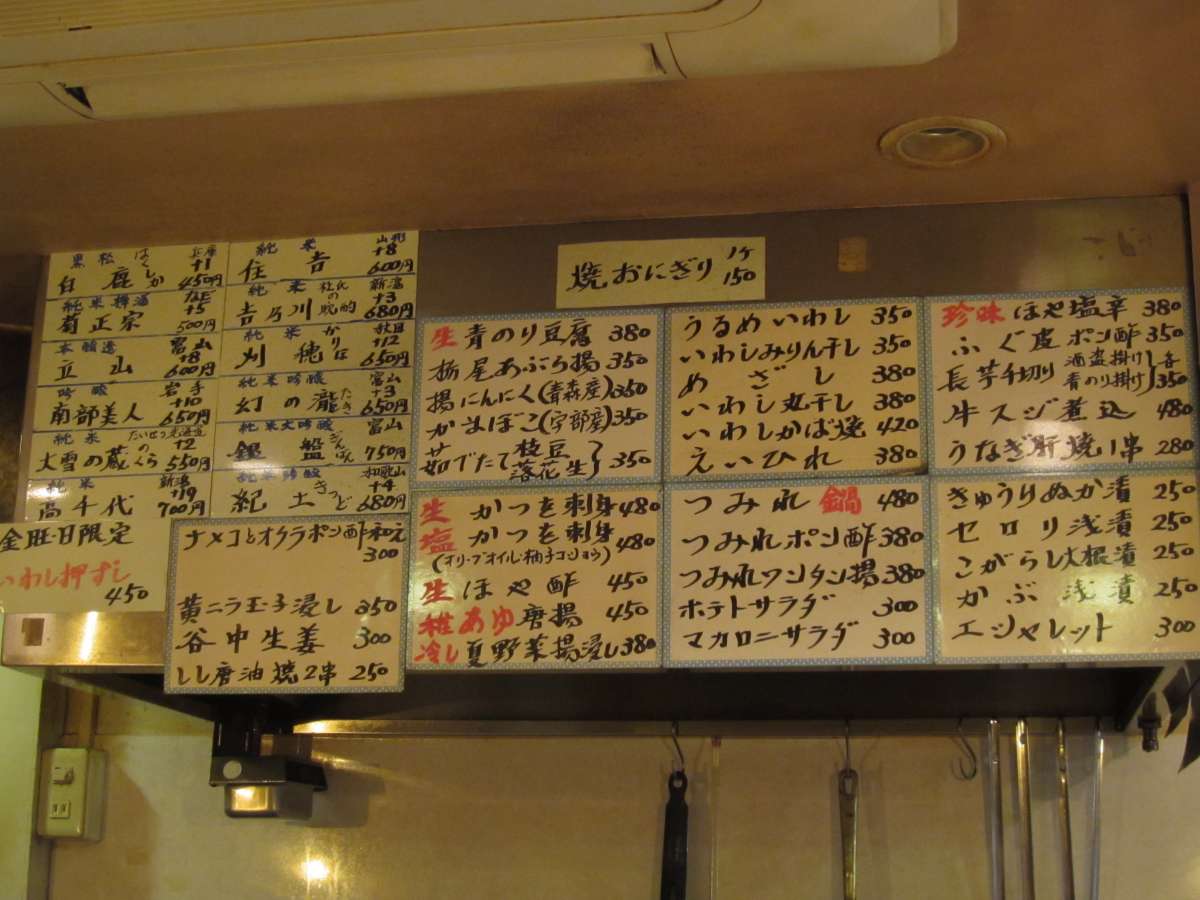 黒松 はく 兵庫
白鹿 しか +1 450円
純米樽酒 兵庫
菊正宗 +5 500円
本醸造 富山
立山 +8 600円
吟醸 岩手
南部美人 +10 650円
純米 たいせつ 北海道
大雪の蔵 のくら +2 550円
純米 新潟
高千代 +19 700円
純米 山形
住吉 +8 600円
純米 杜氏の 新潟
吉乃川 晩酌 +3 680円
純米 かり 秋田
刈穂 ほ +12 650円
純米吟醸 富山
幻の瀧 たき +3 650円
純米大吟醸 富山
銀盤 ぎんばん 750円
純米吟醸 和歌山
紀土 きっど +4 680円
金・土・日限定
いわし押ずし
450
ナメコとオクラポン酢和え
300
黄ニラ玉子浸し 350
谷中生姜 300
しし唐油焼2串 250
焼おにぎり 1ケ 150
生 青のり豆腐 380
栃尾あぶら揚 350
揚にんにく(青森産) 350
かまぼこ(宇部産) 350
茹でたて 枝豆 落花生 350
生 かつを刺身 480
塩 かつを刺身
(オリーブオイル・柚子コショウ) 480
生 ほや酢 450
稚あゆ唐揚 450
冷し 夏野菜揚浸し 380
うるめいわし 350
いわしみりん干し 350
めざし 380
いわし丸干し 380
いわしかば焼 420
えいひれ 380
つみれ鍋 480
つみれポン酢 380
つみれワンタン揚 380
ポテトサラダ 300
マカロニサラダ 300
珍味 ほや塩辛 380
ふぐ皮ポン酢 350
長芋千切り 酒盗掛け 青のり掛け 各350
牛スジ煮込 480
うなぎ肝焼1串 280
きゅうりぬか漬 250
セロリ浅漬 250
こがらし大根漬 250
かぶ浅漬 250
エシャレット 300